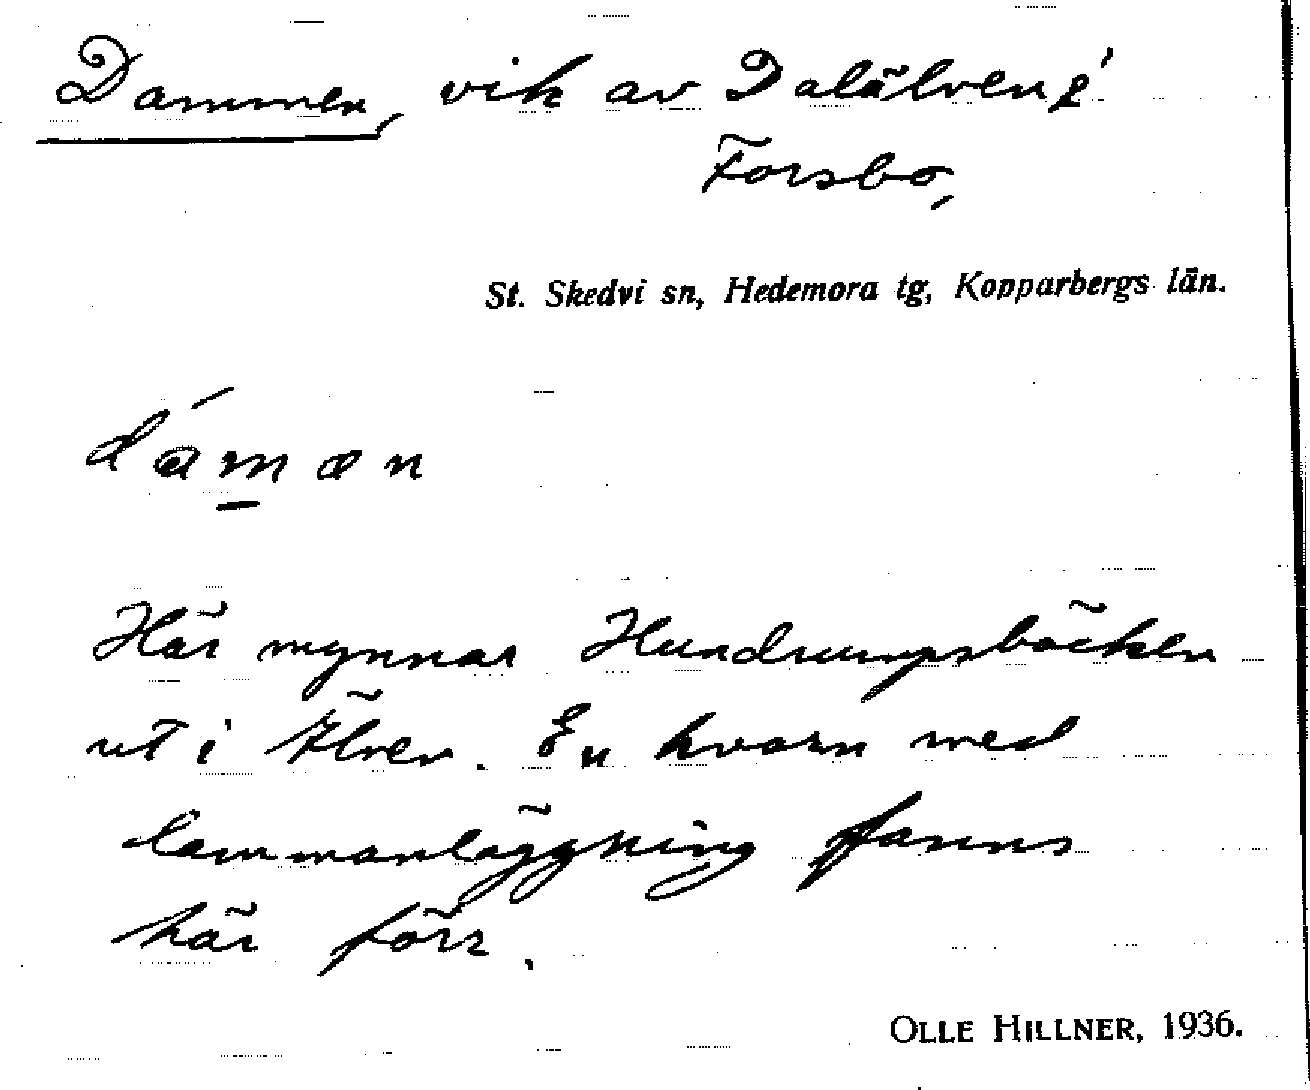 Dammen, vik av Dalälven i
Forsbo,
St. Skedvi sn, Hedemora tg, Kopparbergs län.
Här mynnar Hundrumpsbäcken
ut i Älven. En kvarn med
dammanläggning fanns
här förr.
OLLE HILLNER, 1936.